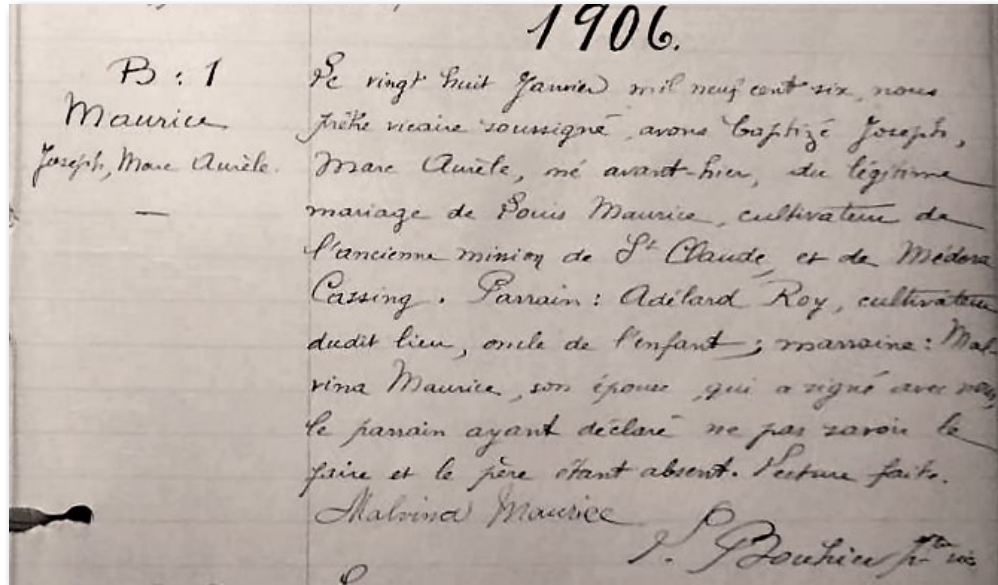 1906.
B : 1
Maurice
Joseph, Marc Aurèle.
—
Le vingt huit Janvier mil neuf cent six, nous
prêtre vicaire soussigné, avons baptizé Joseph,
Marc Aurèle, né avant-hier, du légitime
mariage de Louis Maurice, cultivateur de
l'ancienne mission de St Claude, et de Médora
Cassing. Parrain : Adélard Roy, cultivateur
dudit lieu, oncle de l'enfant ; marraine : Mal-
vina Maurice, son épouse, qui a signé avec nous,
le parrain ayant déclaré ne pas savoir le
faire et le père étant absent. Lecture faite.
Malvina Maurice
Bouhier ptre vic